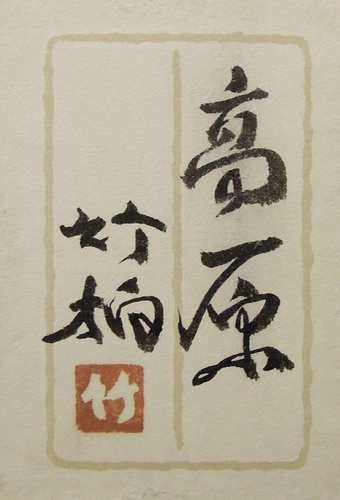 高原
竹柏
竹